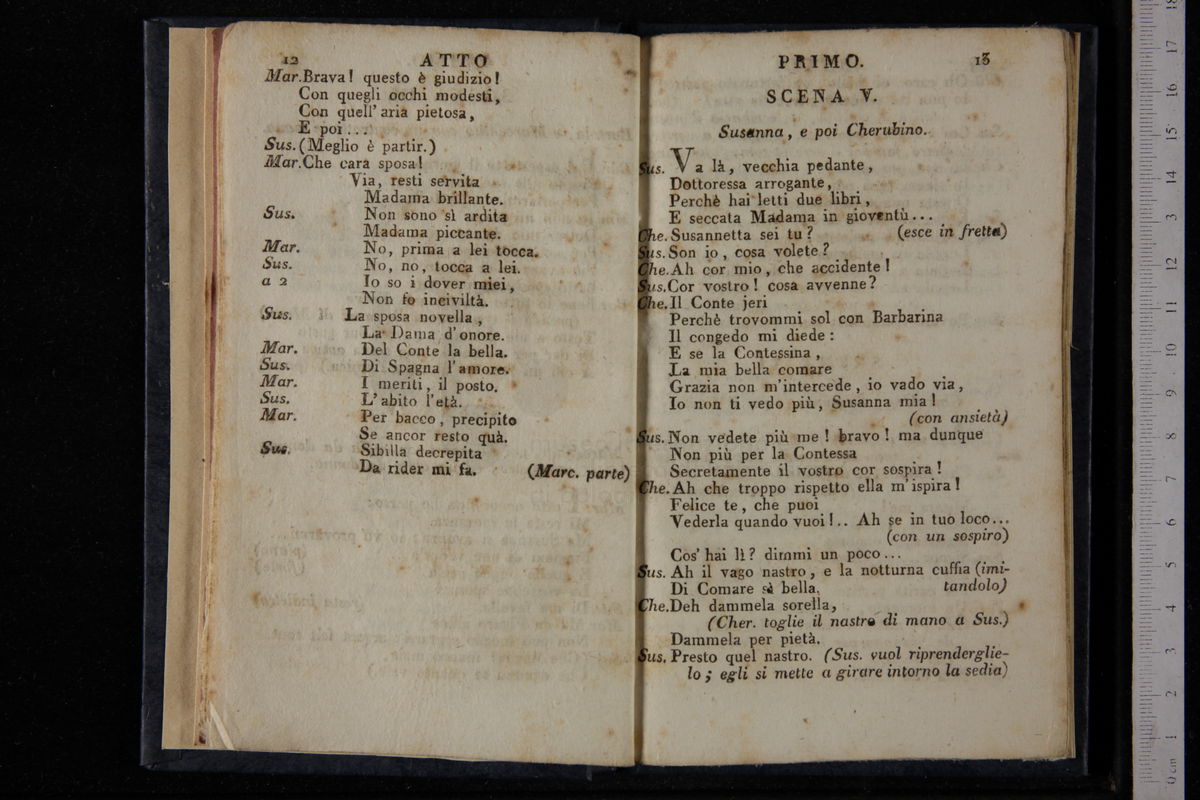 12 ATTO
Mar. Brava! questo è giudizio!
Con quegli occhi modesti,
Con quell' aria pietosa,
E poi...
Sus. (Meglio è partir.)
Mar. Che cara sposa!
Via, resti servita
Madama brillante.
Sus. Non sono sì ardita
Madama piccante.
Mar. No, prima a lei tocca.
Sus. No, no, tocca a lei.
a 2 Io so i dover miei,
Non fo inciviltà.
Sus. La sposa novella,
La Dama d'onore.
Mar. Del Conte la bella.
Sus. Di Spagna l'amore.
Mar. I meriti, il posto.
Sus. L'abito l'età.
Mar. Per bacco, precipito
Se ancor resto quà.
Sus. Sibilla decrepita
Da rider mi fa. (Marc. parte)
PRIMO. 13
SCENA V.
Susanna, e poi Cherubino.
Sus. Va là, vecchia pedante,
Dottoressa arrogante,
Perchè hai letti due libri,
E seccata Madama in gioventù...
Che. Susannetta sei tu? (esce in fretta)
Sus. Son io, cosa volete?
Che. Ah cor mio, che accidente!
Sus. Cor vostro! cosa avvenne?
Che. Il Conte jeri
Perchè trovommi sol con Barbarina
Il congedo mi diede:
E se la Contessina,
La mia bella comare
Grazia non m'intercede, io vado via,
Io non ti vedo più, Susanna mia!
(con ansietà)
Sus. Non vedete più me! bravo! ma dunque
Non più per la Contessa
Secretamente il vostro cor sospira!
Che. Ah che troppo rispetto ella m'ispira!
Felice te, che puoi
Vederla quando vuoi!.. Ah se in tuo loco...
(con un sospiro)
Cos' hai lì? dimmi un poco...
Sus. Ah il vago nastro, e la notturna cuffia (imi-
Di Comare sì bella. tandolo)
Che. Deh dammela sorella,
(Cher. toglie il nastro di mano a Sus.)
Dammela per pietà.
Sus. Presto quel nastro. (Sus. vuol riprenderglie-
lo; egli si mette a girare intorno la sedia)
18
17
16
15
14
13
12
11
10
9
8
7
6
5
4
3
2
1
0 cm